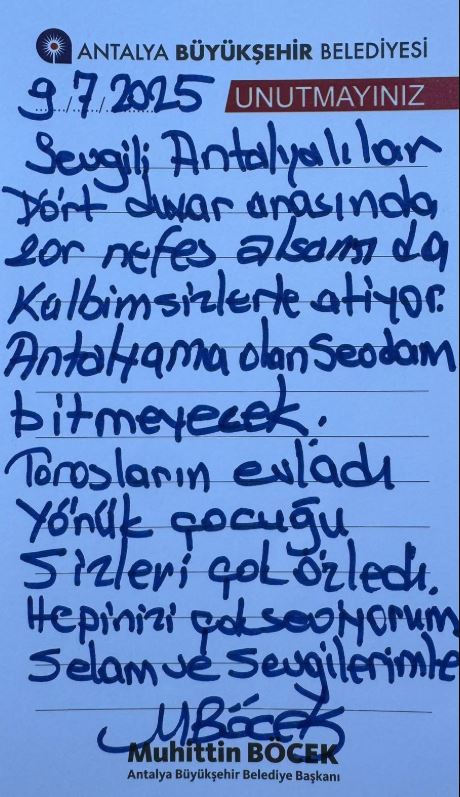 ANTALYA BÜYÜKŞEHİR BELEDİYESİ
9/7/2025
UNUTMAYINIZ
Sevgili Antalyalılar
Dört duvar arasında
zor nefes alsam da
Kalbim sizlerle atıyor.
Antalyama olan Sevdam
bitmeyecek.
Torosların evladı
Yörük çocuğu
Sizleri çok özledi.
Hepinizi çok seviyorum
Selam ve Sevgilerimle
MBöcek
Muhittin BÖCEK
Antalya Büyükşehir Belediye Başkanı